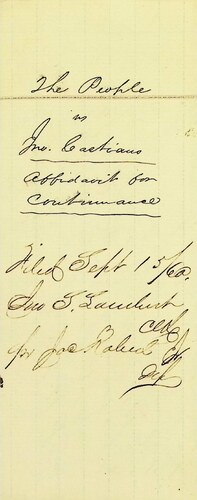 The People
vs
Jno. Castiano
Affidavit for
Continuance
Filed Sept 15/60.
Jno S. Lambert
Clk
pr Joe Roberd
Dep